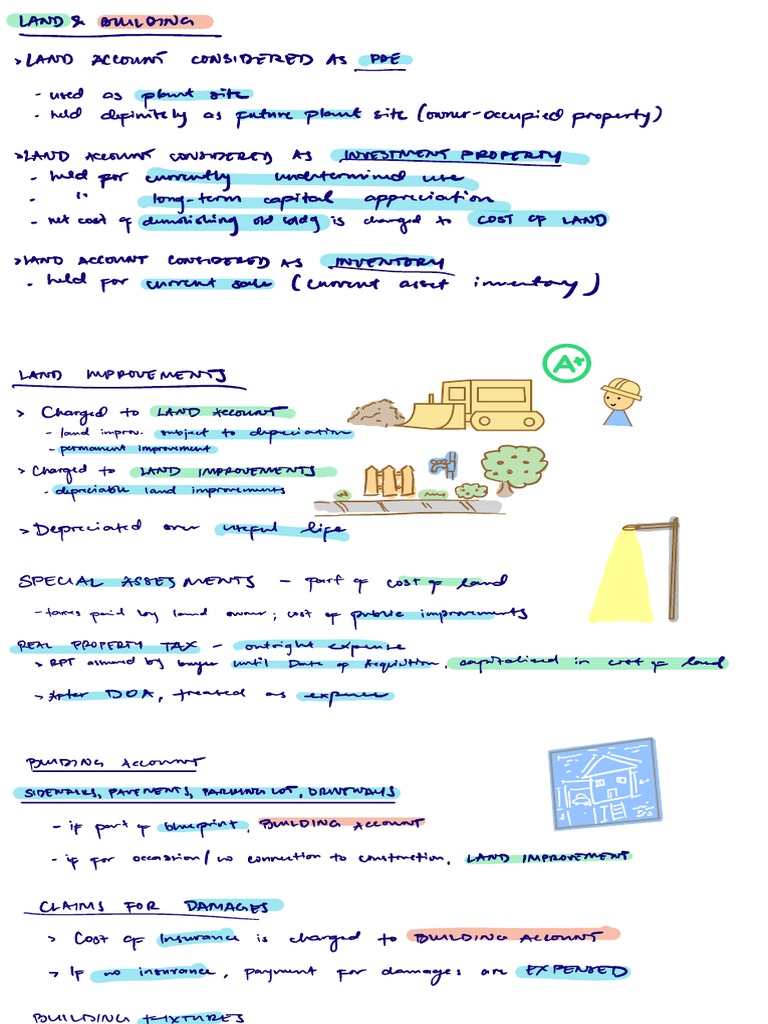 LAND & BUILDING
> LAND ACCOUNT CONSIDERED AS PPE
- used as plant site
- held definitely as future plant site (owner-occupied property)
> LAND ACCOUNT CONSIDERED AS INVESTMENT PROPERTY
- held for currently undetermined use
- " long-term capital appreciation
- net cost of demolishing old bldg is charged to COST OF LAND
> LAND ACCOUNT CONSIDERED AS INVENTORY
- held for current sale (current asset inventory)
A+
LAND IMPROVEMENTS
> Charged to LAND ACCOUNT
- land improv. subject to depreciation
- permanent improvement
> Charged to LAND IMPROVEMENTS
- depreciable land improvements
> Depreciated over useful life
SPECIAL ASSESSMENTS - part of cost of land
- taxes paid by land owner; cost of public improvements
REAL PROPERTY TAX - outright expense
> RPT assumed by buyer until Date of Acquisition, capitalized in cost of land
> After DOA, treated as expense
BUILDING ACCOUNT
SIDEWALKS, PAVEMENTS, PARKING LOT, DRIVEWAYS
- if part of blueprint, BUILDING ACCOUNT
- if for occassion/no connection to construction, LAND IMPROVEMENT
CLAIMS FOR DAMAGES
> Cost of Insurance is charged to BUILDING ACCOUNT
> If no insurance, payment for damages are EXPENSED
BUILDING FIXTURES